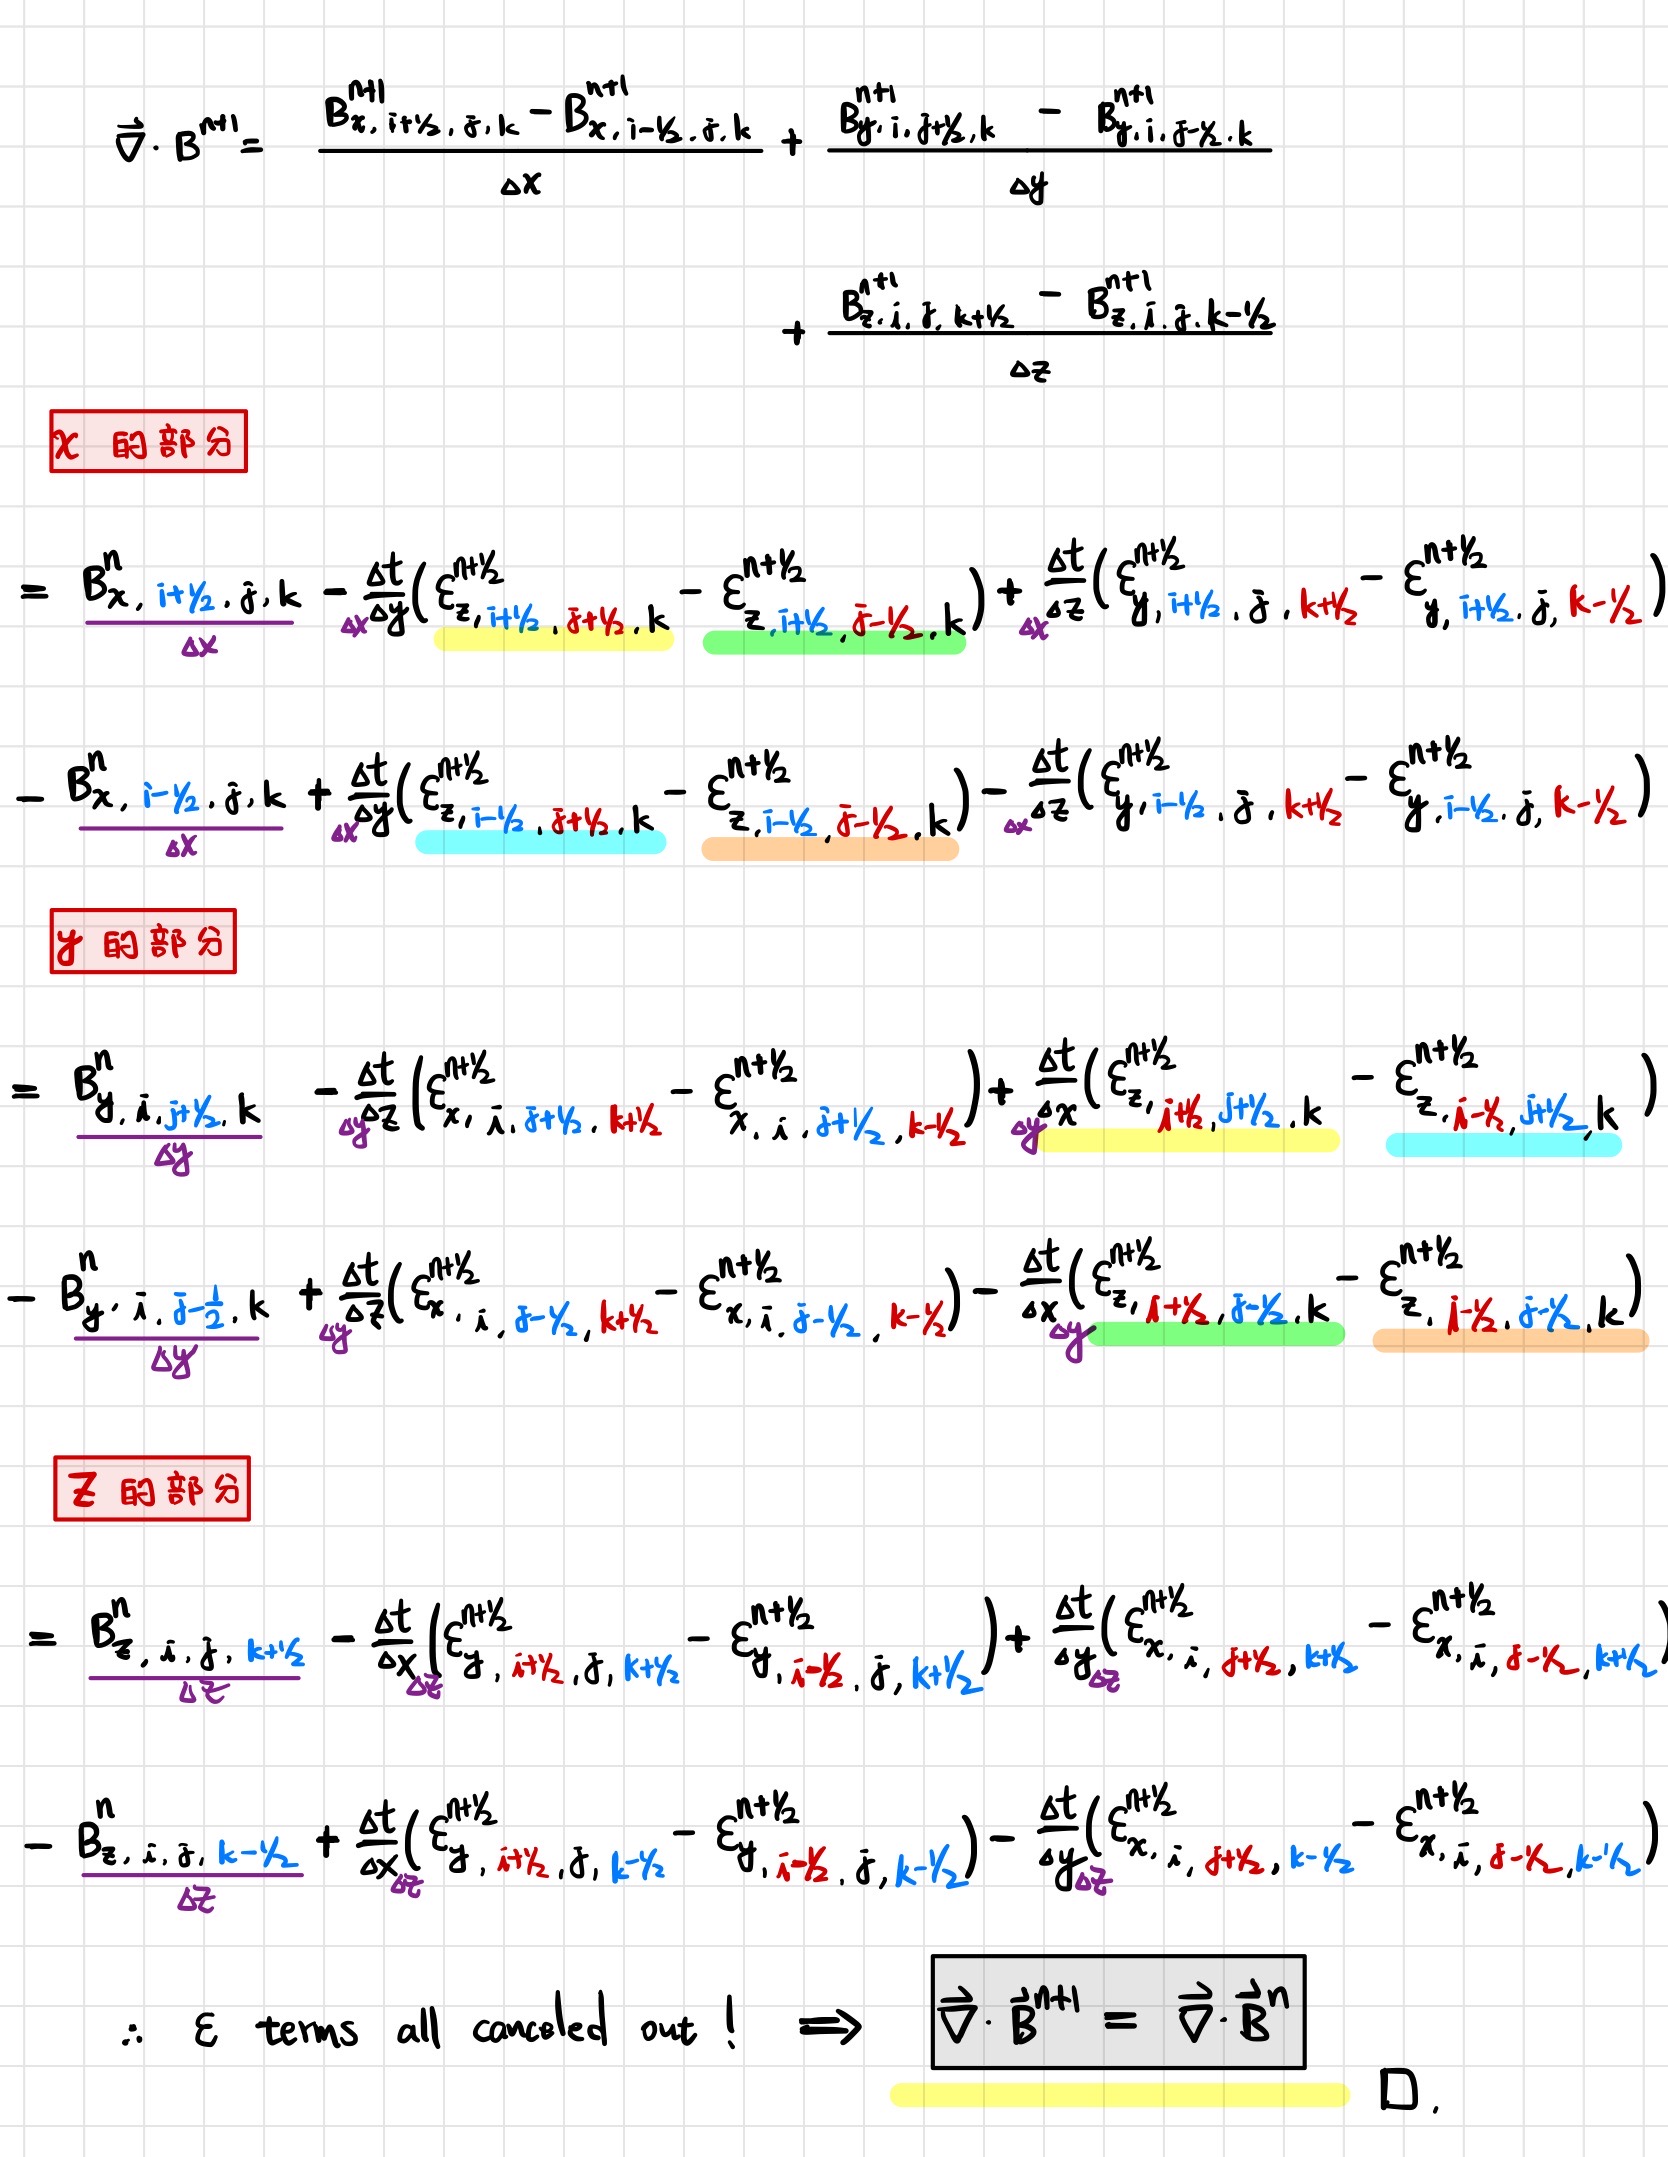 $\vec{\nabla} \cdot B^{n+1} = \frac{B^{n+1}_{x, i+1/2, j, k} - B^{n+1}_{x, i-1/2, j, k}}{\Delta x} + \frac{B^{n+1}_{y, i, j+1/2, k} - B^{n+1}_{y, i, j-1/2, k}}{\Delta y}$
$+ \frac{B^{n+1}_{z, i, j, k+1/2} - B^{n+1}_{z, i, j, k-1/2}}{\Delta z}$
x 的部分
$= \frac{B^{n}_{x, i+1/2, j, k}}{\Delta x} - \frac{\Delta t}{\Delta x \Delta y} ( \varepsilon^{n+1/2}_{z, i+1/2, j+1/2, k} - \varepsilon^{n+1/2}_{z, i+1/2, j-1/2, k} ) + \frac{\Delta t}{\Delta x \Delta z} ( \varepsilon^{n+1/2}_{y, i+1/2, j, k+1/2} - \varepsilon^{n+1/2}_{y, i+1/2, j, k-1/2} )$
$- \frac{B^{n}_{x, i-1/2, j, k}}{\Delta x} + \frac{\Delta t}{\Delta x \Delta y} ( \varepsilon^{n+1/2}_{z, i-1/2, j+1/2, k} - \varepsilon^{n+1/2}_{z, i-1/2, j-1/2, k} ) - \frac{\Delta t}{\Delta x \Delta z} ( \varepsilon^{n+1/2}_{y, i-1/2, j, k+1/2} - \varepsilon^{n+1/2}_{y, i-1/2, j, k-1/2} )$
y 的部分
$= \frac{B^{n}_{y, i, j+1/2, k}}{\Delta y} - \frac{\Delta t}{\Delta y \Delta z} ( \varepsilon^{n+1/2}_{x, i, j+1/2, k+1/2} - \varepsilon^{n+1/2}_{x, i, j+1/2, k-1/2} ) + \frac{\Delta t}{\Delta y \Delta x} ( \varepsilon^{n+1/2}_{z, i+1/2, j+1/2, k} - \varepsilon^{n+1/2}_{z, i-1/2, j+1/2, k} )$
$- \frac{B^{n}_{y, i, j-\frac{1}{2}, k}}{\Delta y} + \frac{\Delta t}{\Delta y \Delta z} ( \varepsilon^{n+1/2}_{x, i, j-1/2, k+1/2} - \varepsilon^{n+1/2}_{x, i, j-1/2, k-1/2} ) - \frac{\Delta t}{\Delta x \Delta y} ( \varepsilon^{n+1/2}_{z, i+1/2, j-1/2, k} - \varepsilon^{n+1/2}_{z, i-1/2, j-1/2, k} )$
z 的部分
$= \frac{B^{n}_{z, i, j, k+1/2}}{\Delta z} - \frac{\Delta t}{\Delta x \Delta z} ( \varepsilon^{n+1/2}_{y, i+1/2, j, k+1/2} - \varepsilon^{n+1/2}_{y, i-1/2, j, k+1/2} ) + \frac{\Delta t}{\Delta y \Delta z} ( \varepsilon^{n+1/2}_{x, i, j+1/2, k+1/2} - \varepsilon^{n+1/2}_{x, i, j-1/2, k+1/2} )$
$- \frac{B^{n}_{z, i, j, k-1/2}}{\Delta z} + \frac{\Delta t}{\Delta x \Delta z} ( \varepsilon^{n+1/2}_{y, i+1/2, j, k-1/2} - \varepsilon^{n+1/2}_{y, i-1/2, j, k-1/2} ) - \frac{\Delta t}{\Delta y \Delta z} ( \varepsilon^{n+1/2}_{x, i, j+1/2, k-1/2} - \varepsilon^{n+1/2}_{x, i, j-1/2, k-1/2} )$
∴ ε terms all canceled out ! ⟹ $\vec{\nabla} \cdot \vec{B}^{n+1} = \vec{\nabla} \cdot \vec{B}^{n}$ □.